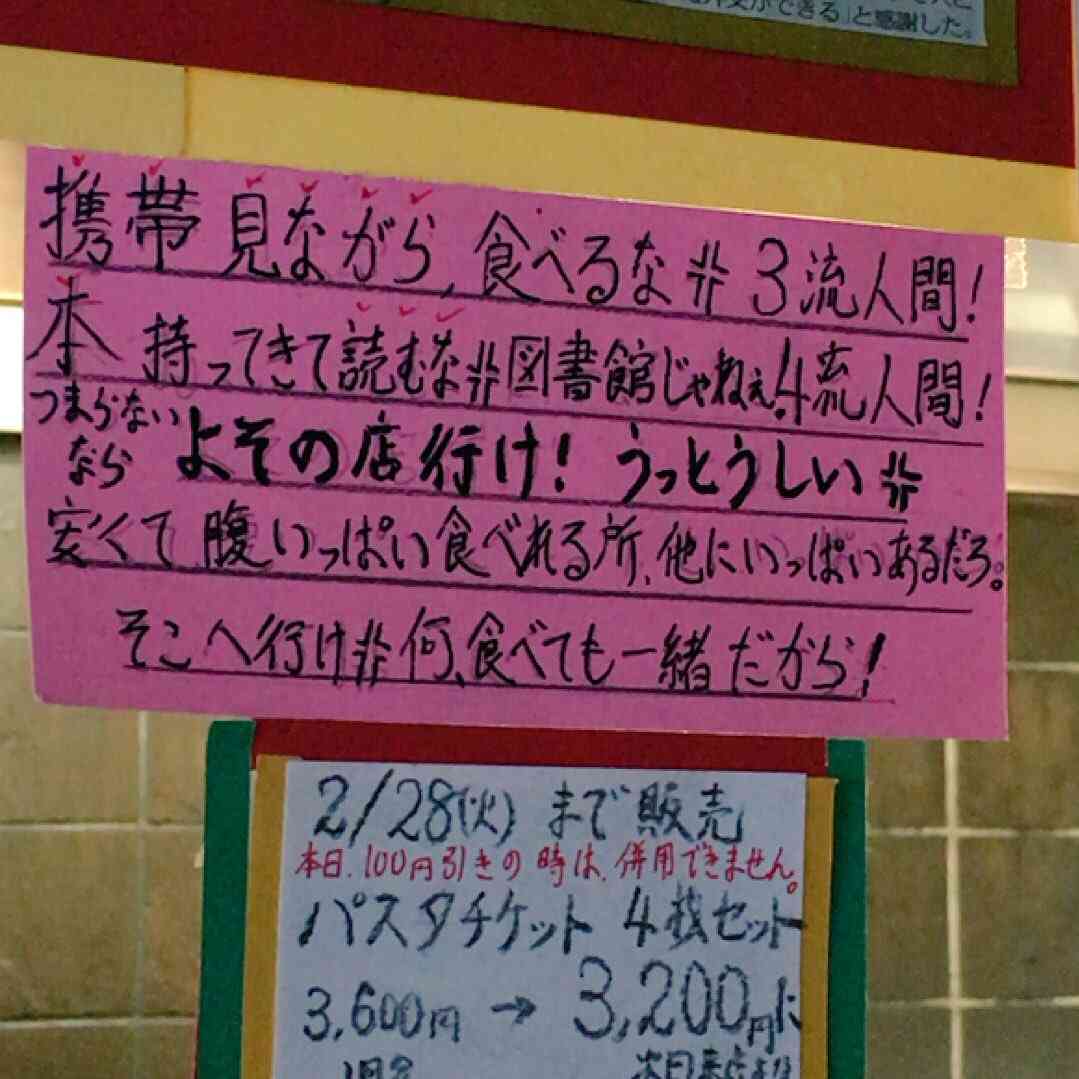 ができる」と感謝した。
携帯見ながら、食べるな 3流人間!
本持ってきて読むな 図書館じゃねぇ!4流人間!
つまらないなら よその店行け! うっとうしい
安くて腹いっぱい食べれる所、他にいっぱいあるだろ。
そこへ行け 何、食べても一緒だから!
2/28(火)まで販売
本日、100円引きの時は、併用できません。
パスタチケット 4枚セット
3,600円 → 3,200円に